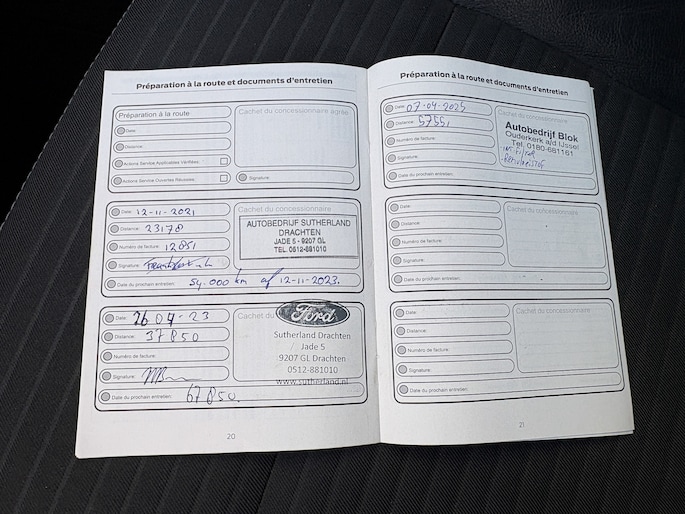 Préparation à la route et documents d'entretien
Préparation à la route
Cachet du concessionnaire agréé
Date:
Distance:
Actions Service Applicables Vérifiées:
Actions Service Ouvertes Réussies:
Signature:
Date: 12-11-2021
Cachet du concessionnaire
Distance: 23178
AUTOBEDRIJF SUTHERLAND
DRACHTEN
JADE 5 - 9207 GL
TEL. 0512-881010
Numéro de facture: 12851
Signature:
Date du prochain entretien: 54.000 km of 12-11-2023.
Date: 26 04-23
Cachet du
Ford
Distance: 37850
Sutherland Drachten
Jade 5
9207 GL Drachten
0512-881010
www.sutherland.nl
Numéro de facture:
Signature:
Date du prochain entretien: 67850.
20
Préparation à la route et documents d'entretien
Date: 07-04-2025
Cachet du concessionnaire
Distance: 57551
Autobedrijf Blok
Ouderkerk a/d IJssel
Tel. 0180-681161
Numéro de facture:
Signature:
Date du prochain entretien:
Date:
Cachet du concessionnaire
Distance:
Numéro de facture:
Signature:
Date du prochain entretien:
Date:
Cachet du concessionnaire
Distance:
Numéro de facture:
Signature:
Date du prochain entretien:
21